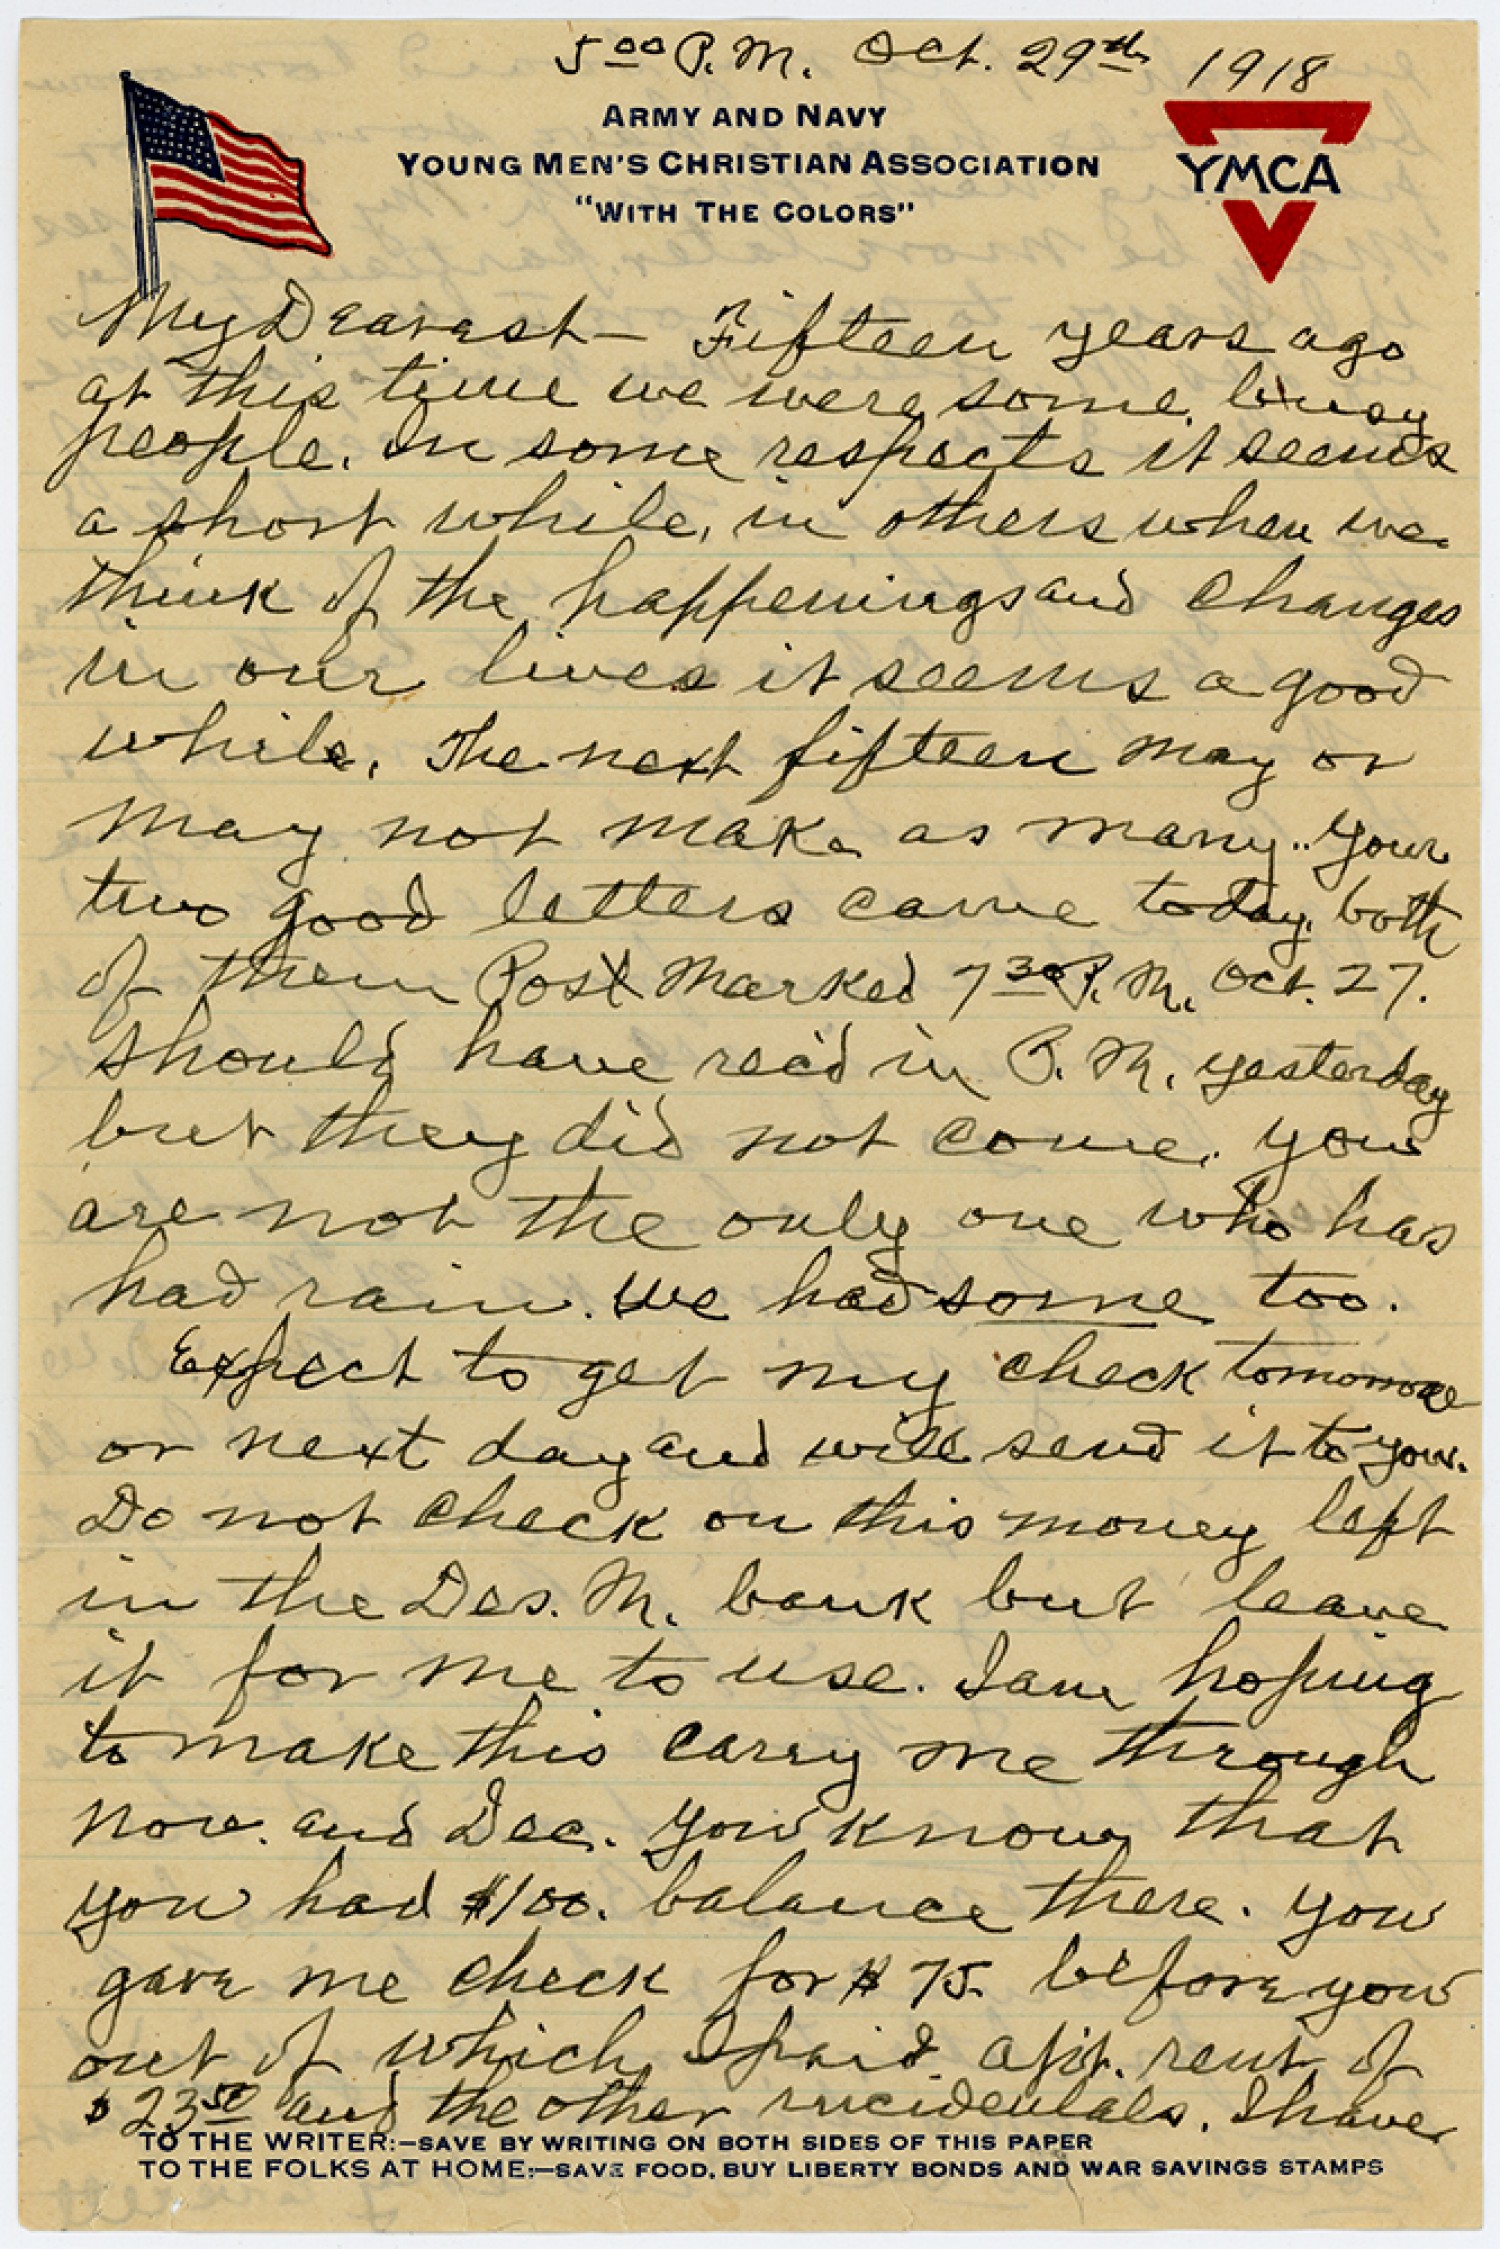 5 00 P.M. Oct. 29th 1918
ARMY AND NAVY
YOUNG MEN'S CHRISTIAN ASSOCIATION
"WITH THE COLORS"
YMCA
My Dearest — Fifteen years ago
at this time we were some busy
people. In some respects it seems
a short while, in others when we
think of the happenings and changes
in our lives it seems a good
while. The next fifteen may or
may not make as many.. Your
two good letters came today, both
of them Post Marked 7 30 P.M. Oct. 27.
Should have rec'd in P.M. yesterday
but they did not come. You
are not the only one who has
had rain. We had some too.
Expect to get my check tomorrow
or next day and will send it to you.
Do not check on this money left
in the Des. M. bank but leave
it for me to use. I am hoping
to make this carry me through
Nov. and Dec. You know that
you had $100. balance there. You
gave me check for $75. before you
out of which I paid apt. rent of
$23 50 and the other incidentals. I have
TO THE WRITER:—SAVE BY WRITING ON BOTH SIDES OF THIS PAPER
TO THE FOLKS AT HOME:—SAVE FOOD, BUY LIBERTY BONDS AND WAR SAVINGS STAMPS